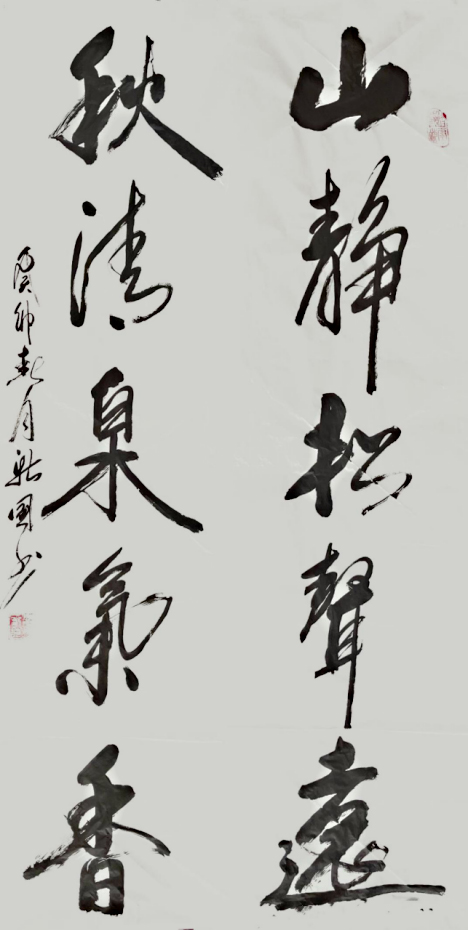 山静松聲遠
秋清泉氣香
癸卯春月 國书